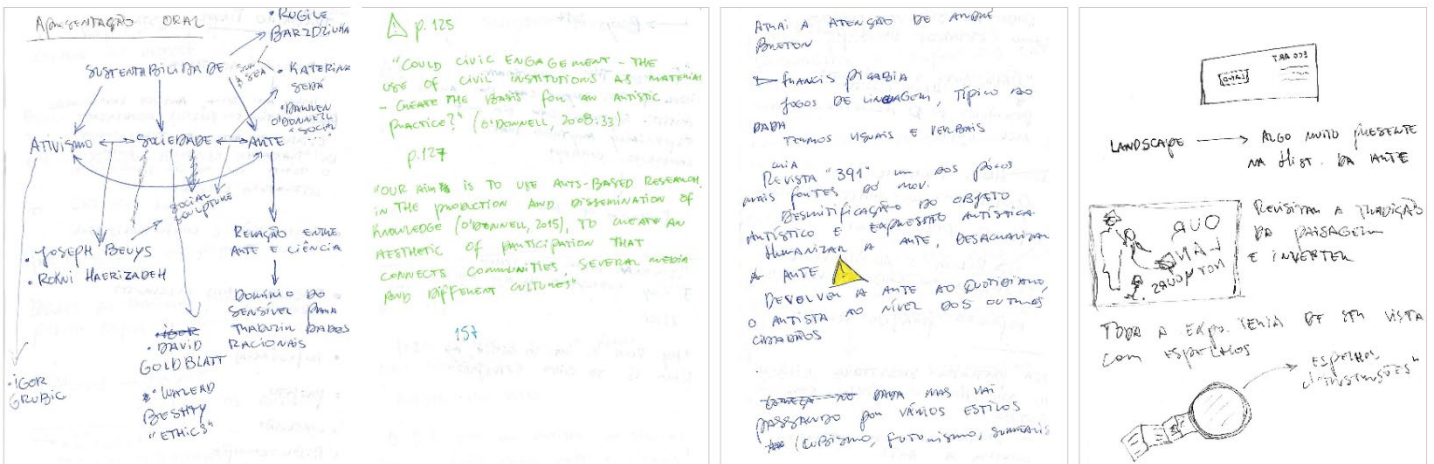 Apresentação oral
• Rugile
Barzdziuka
Sustentabilidade
Sun & Sea
• Katerina
Šedá
• Darren
O'Donnell
"Social
Ativismo
Sociedade
Arte
Social
Sculpture
• Joseph Beuys
• Rokni Haerizadeh
Relação entre
arte e ciência
Domínio do
sensível para
traduzir dados
racionais
Igor
• David
Goldblatt
• Walead
Beshty
"Ethics"
• Igor
Grubic
p. 125
"Could civic engagement - the
use of civic institutions as material
- create the basis for an artistic
practice?" (O'Donnell, 2008:33)
p. 127
"Our aim is to use arts-based research,
in the production and dissemination of
knowledge (O'Donnell, 2015), to create an
aesthetic of participation that
connects communities, several media
and different cultures"
157
Atrai a atenção de André
Breton
Francis Picabia
Jogos de linguagem, típico do
Dada
Termos visuais e verbais
cria
Revista "391", um dos pólos
mais fortes do mov.
Desmitificação do objeto
artístico e expressão artística
Humanizar a arte, desacralizar
a arte
Devolver a arte ao quotidiano,
o artista ao nível dos outros
cidadãos
Começa no Dada, mas vai
passando por vários estilos
(Cubismo, Futurismo, Surrealis
ECO ART
Landscape
Algo muito presente
na Hist. da Arte
OUR
LAND
NOT YOURS.
Revisitar a tradição
da paisagem
e inverter
Toda a expo. teria de ser vista
com espelhos
"Espelhos